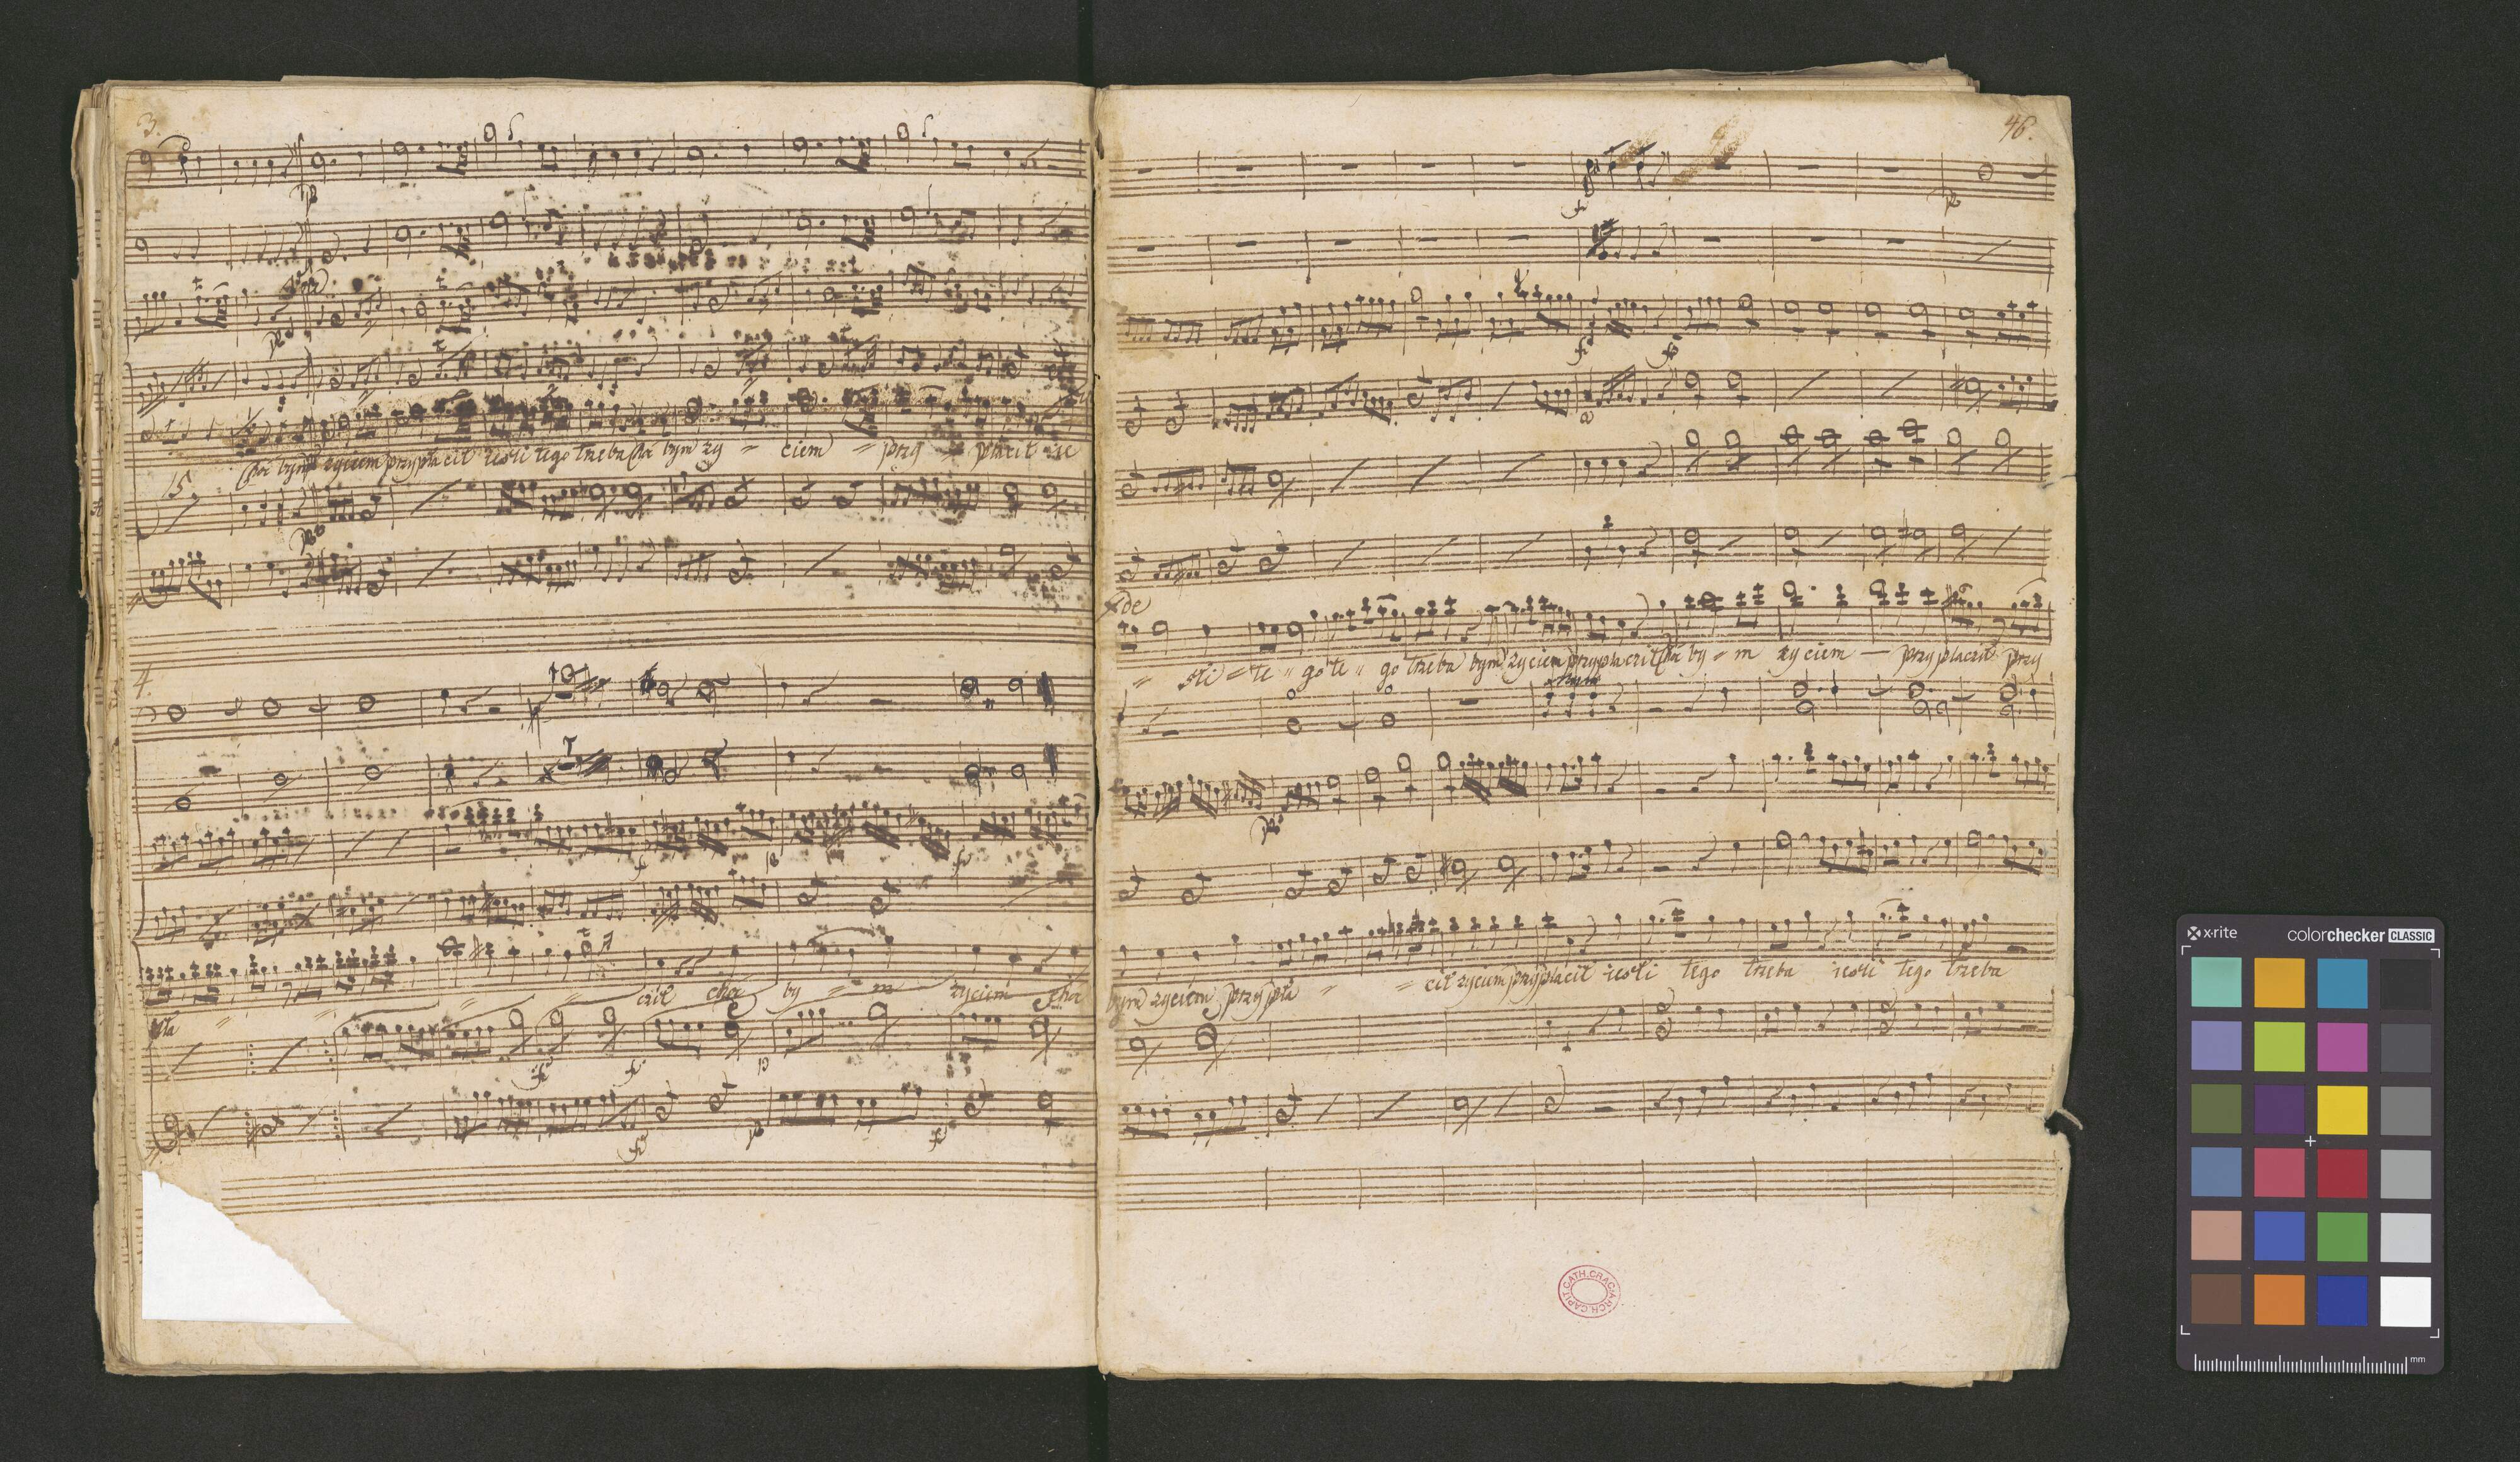 3.
cho bym życiem przypłacił ieśli tego trzeba cho bym ży = ciem = przy = płacił ie
15.
4.
pła = = = cził cho by = m życiem cho
46.
= śli = te = go te = go trzeba bym życiem przypłacził cho by = m życiem — przypłacził przy
bym życiem przypła = = cił życiem przypłacił ieśli tego trzeba ieśli tego trzeba
ARCH. CAPIT. CATH. CRAC.
x-rite
colorchecker CLASSIC
mm